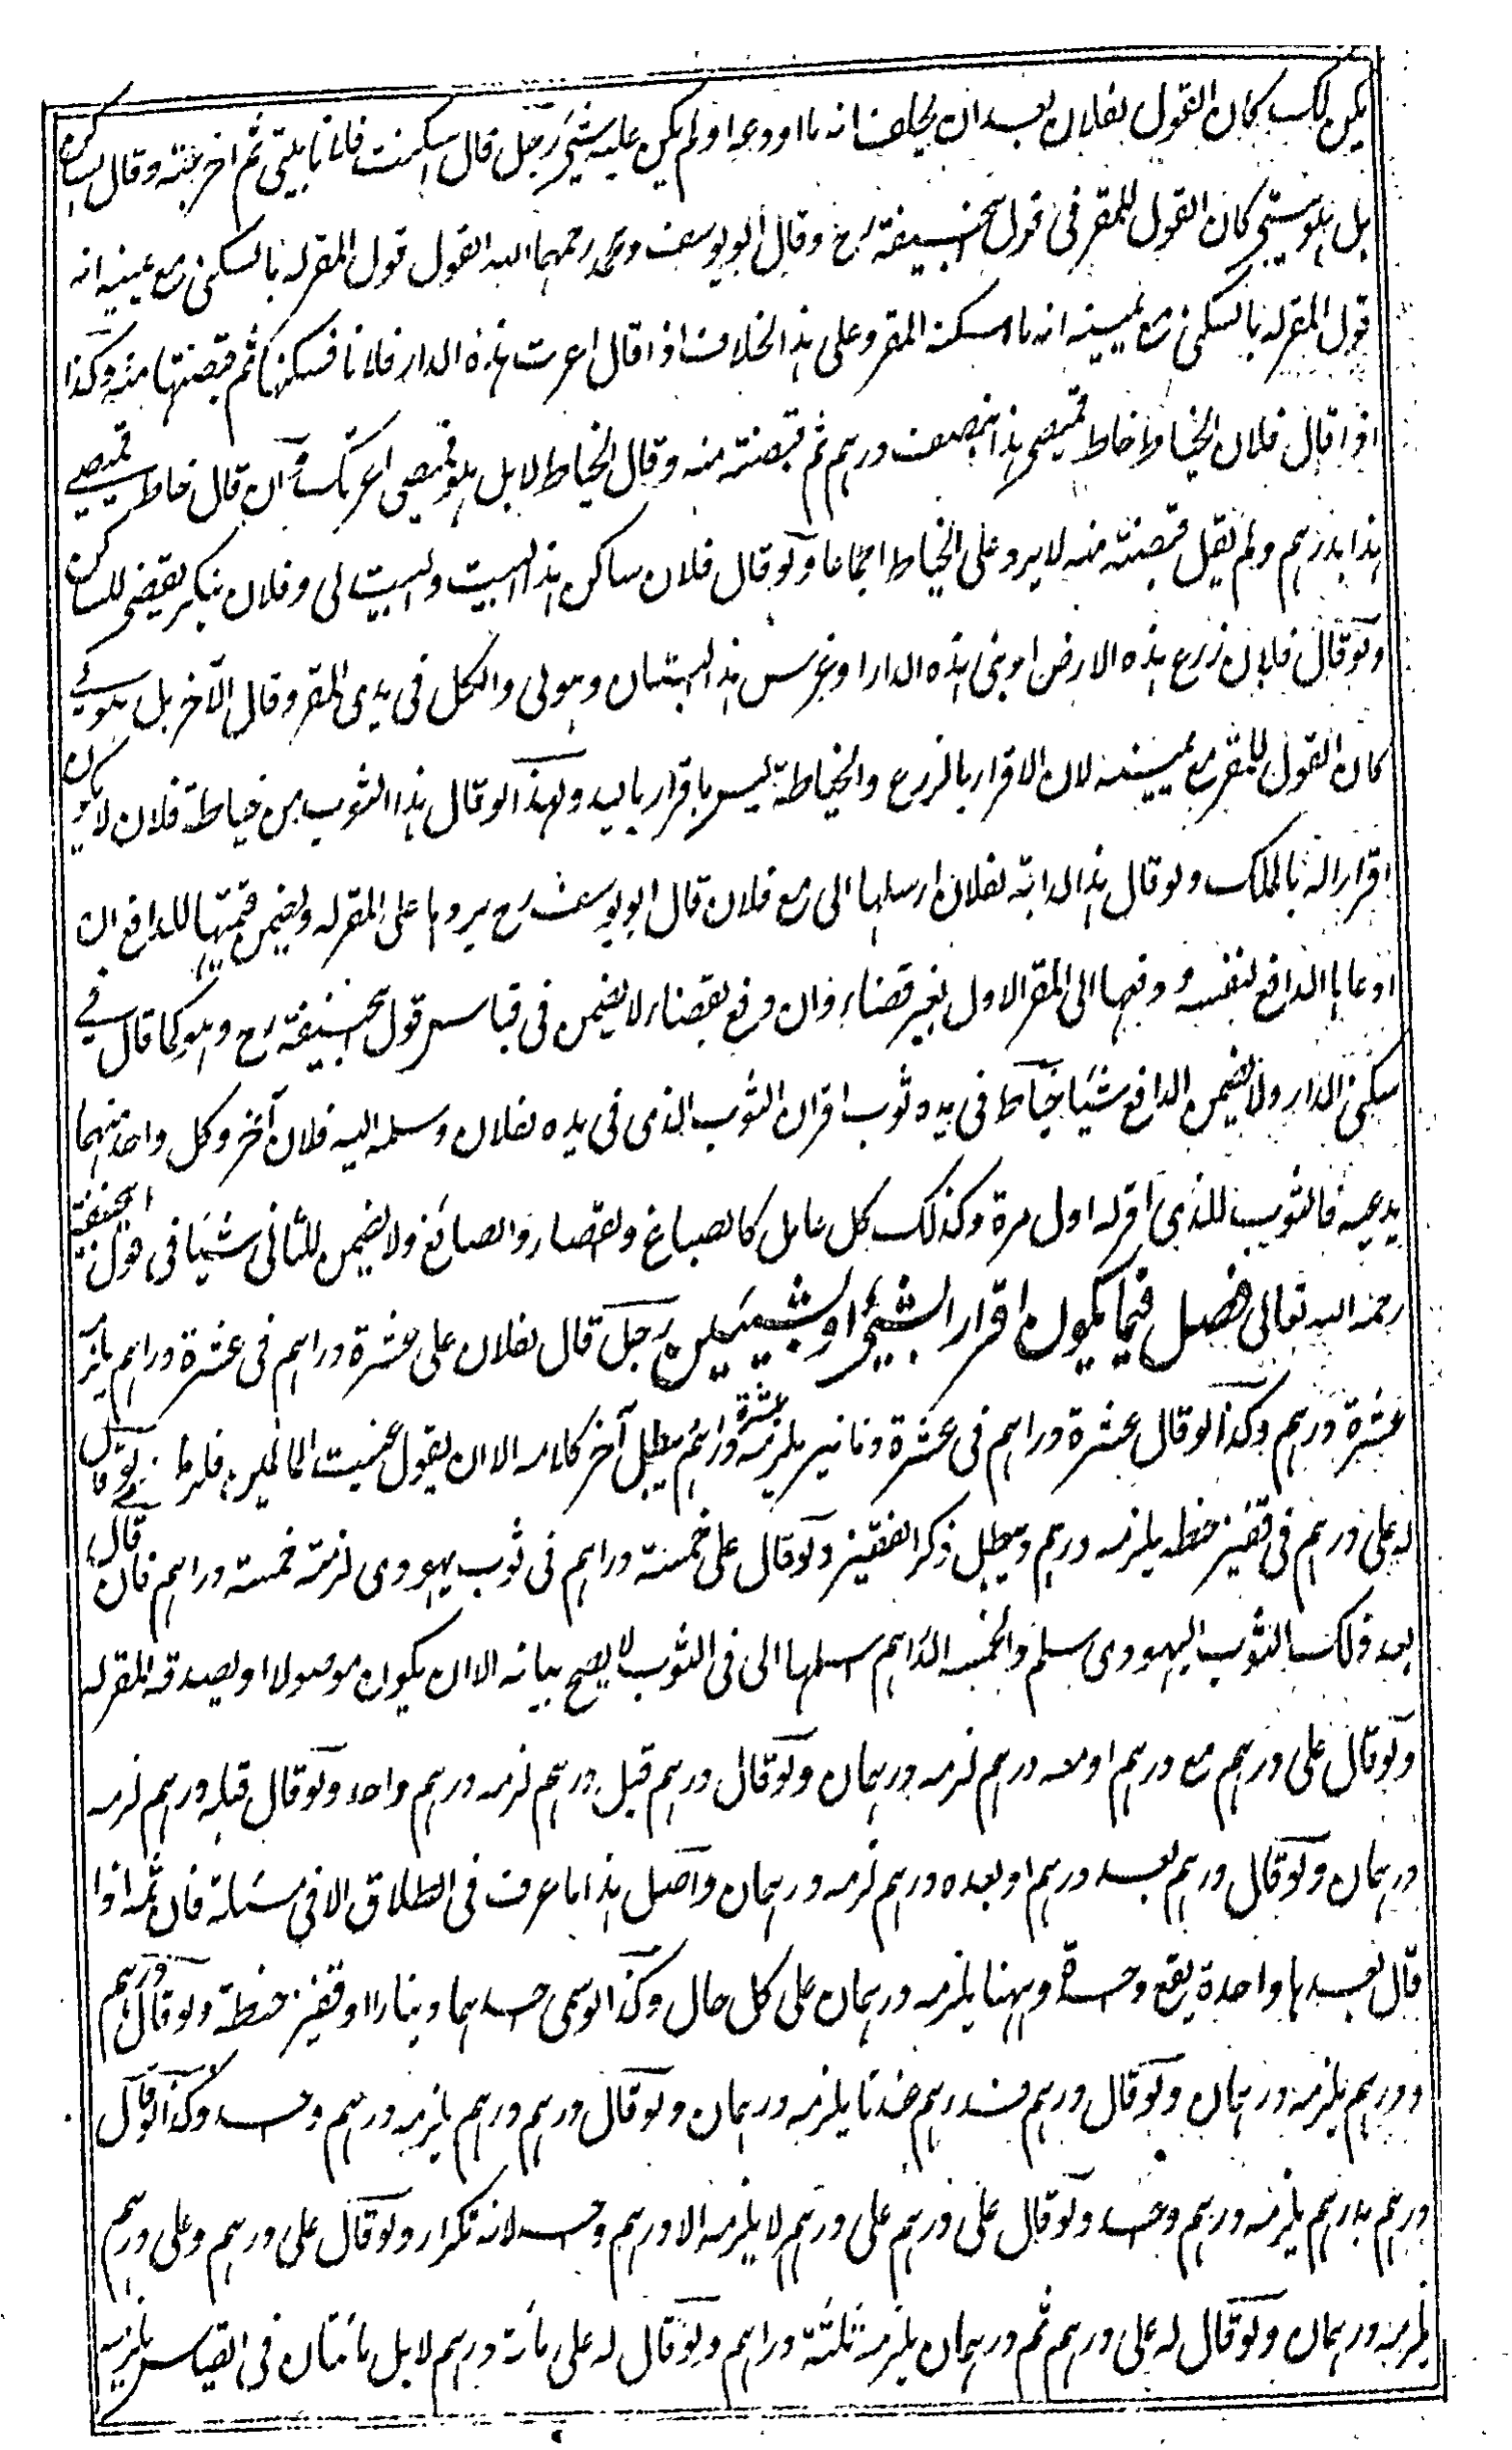 يكن لك كان القول لفلان بعد ان يحلف انه ما اودعه او لم يكن عليه شئ رجل قال اسكنت فلانا بيتى ثم اخرجته وقال الساكن
بل هو بيتى كان القول للمقر فى قول ابيحنيفة رح وقال ابو يوسف ومحمد رحمهما الله القول قول المقر له بالسكنى مع يمينه انه
قول المقر له بالسكنى مع يمينه انه ما اسكنه المقر وعلى هذا الخلاف اذا قال اعرت هذه الدار فلانا فسكنها ثم قبضتها منه وكذا
اذا قال فلان الخياط خاط قميصى هذا بنصف درهم ثم قبضته منه وقال الخياط لا بل هو قميصى اعرتكه وآن قال خاط قميصى
هذا بدرهم ولم يقل قبضته منه لا يرد على الخياط اجماعا ولو قال فلان ساكن هذا البيت والبيت لى وفلان ينكر يقضى للساكن
ولو قال فلان زرع هذه الارض او بنى هذه الدار او غرس هذا البستان وهو لى والكل فى يدى المقر وقال الآخر بل هو لى
كان القول للمقر مع يمينه لان الاقرار بالزرع والخياطة ليس باقرار باليد ولهذا لو قال هذا الثوب من خياطة فلان لا يكون
اقرارا له بالملك ولو قال هذا الدابة لفلان ارسلها الى مع فلان قال ابو يوسف رح يردها على المقر له ويضمن قيمتها للدافع ان
ادعاها الدافع لنفسه ودفعها الى المقر الاول بغير قضاء وان دفع بقضاء لا يضمن فى قياس قول ابيحنيفة رح وهو كما قال فى
سكنى الدار ولا يضمن الدافع شيئا خياط فى يده ثوب اقر ان الثوب الذى فى يده لفلان وسلمه اليه فلان آخر وكل واحد منهما
يدعيه فالثوب للذى اقر له اول مرة وكذلك كل عامل كالصباغ والقصار والصائغ ولا يضمن للثانى شيئا فى قول ابيحنيفة
رحمه الله تعالى فصل فيما يكون اقرارا لشئ او لشيئين رجل قال لفلان على عشرة دراهم فى عشرة دراهم يلزمه
عشرة درهم وكذا لو قال عشرة دراهم فى عشرة دنانير يلزمه عشرة دراهم ويبطل آخر كلامه الا ان يقول عنيت المالين فلزماه ولو قال
له على درهم فى قفيز حنطة يلزمه درهم ويبطل ذكر القفيز ولو قال على خمسة دراهم فى ثوب يهودى لزمته خمسة دراهم فان قال
بعد ذلك الثوب اليهودى سلم والخمسه الدراهم سلمها الى فى الثوب لا يصح بيانه الا ان يكون موصولا او يصدقه المقر له
ولو قال على درهم مع درهم او معه درهم لزمه درهمان ولو قال درهم قبل درهم لزمه درهم واحد ولو قال قبله درهم لزمه
درهمان ولو قال درهم بعد درهم او بعده درهم لزمه درهمان واصل هذا ما عرف فى الطلاق الا فى مسئلة فان ثمه اذا
قال بعدها واحدة يقع واحدة وههنا يلزمه درهمان على كل حال وكذا لو سمى احدهما دينارا او قفيز حنطة ولو قال درهم
ودرهم يلزمه درهمان ولو قال درهم فدرهم عندنا يلزمه درهمان ولو قال درهم درهم يلزمه درهم واحد وكذا لو قال
درهم بدرهم يلزمه درهم واحد ولو قال على درهم على درهم لا يلزمه الا درهم واحد لانه تكرار ولو قال على درهم وعلى درهم
يلزمه درهمان ولو قال له على درهم ثم درهمان يلزمه ثلثة دراهم ولو قال له على مائة درهم لا بل مائتان فى القياس يلزمه